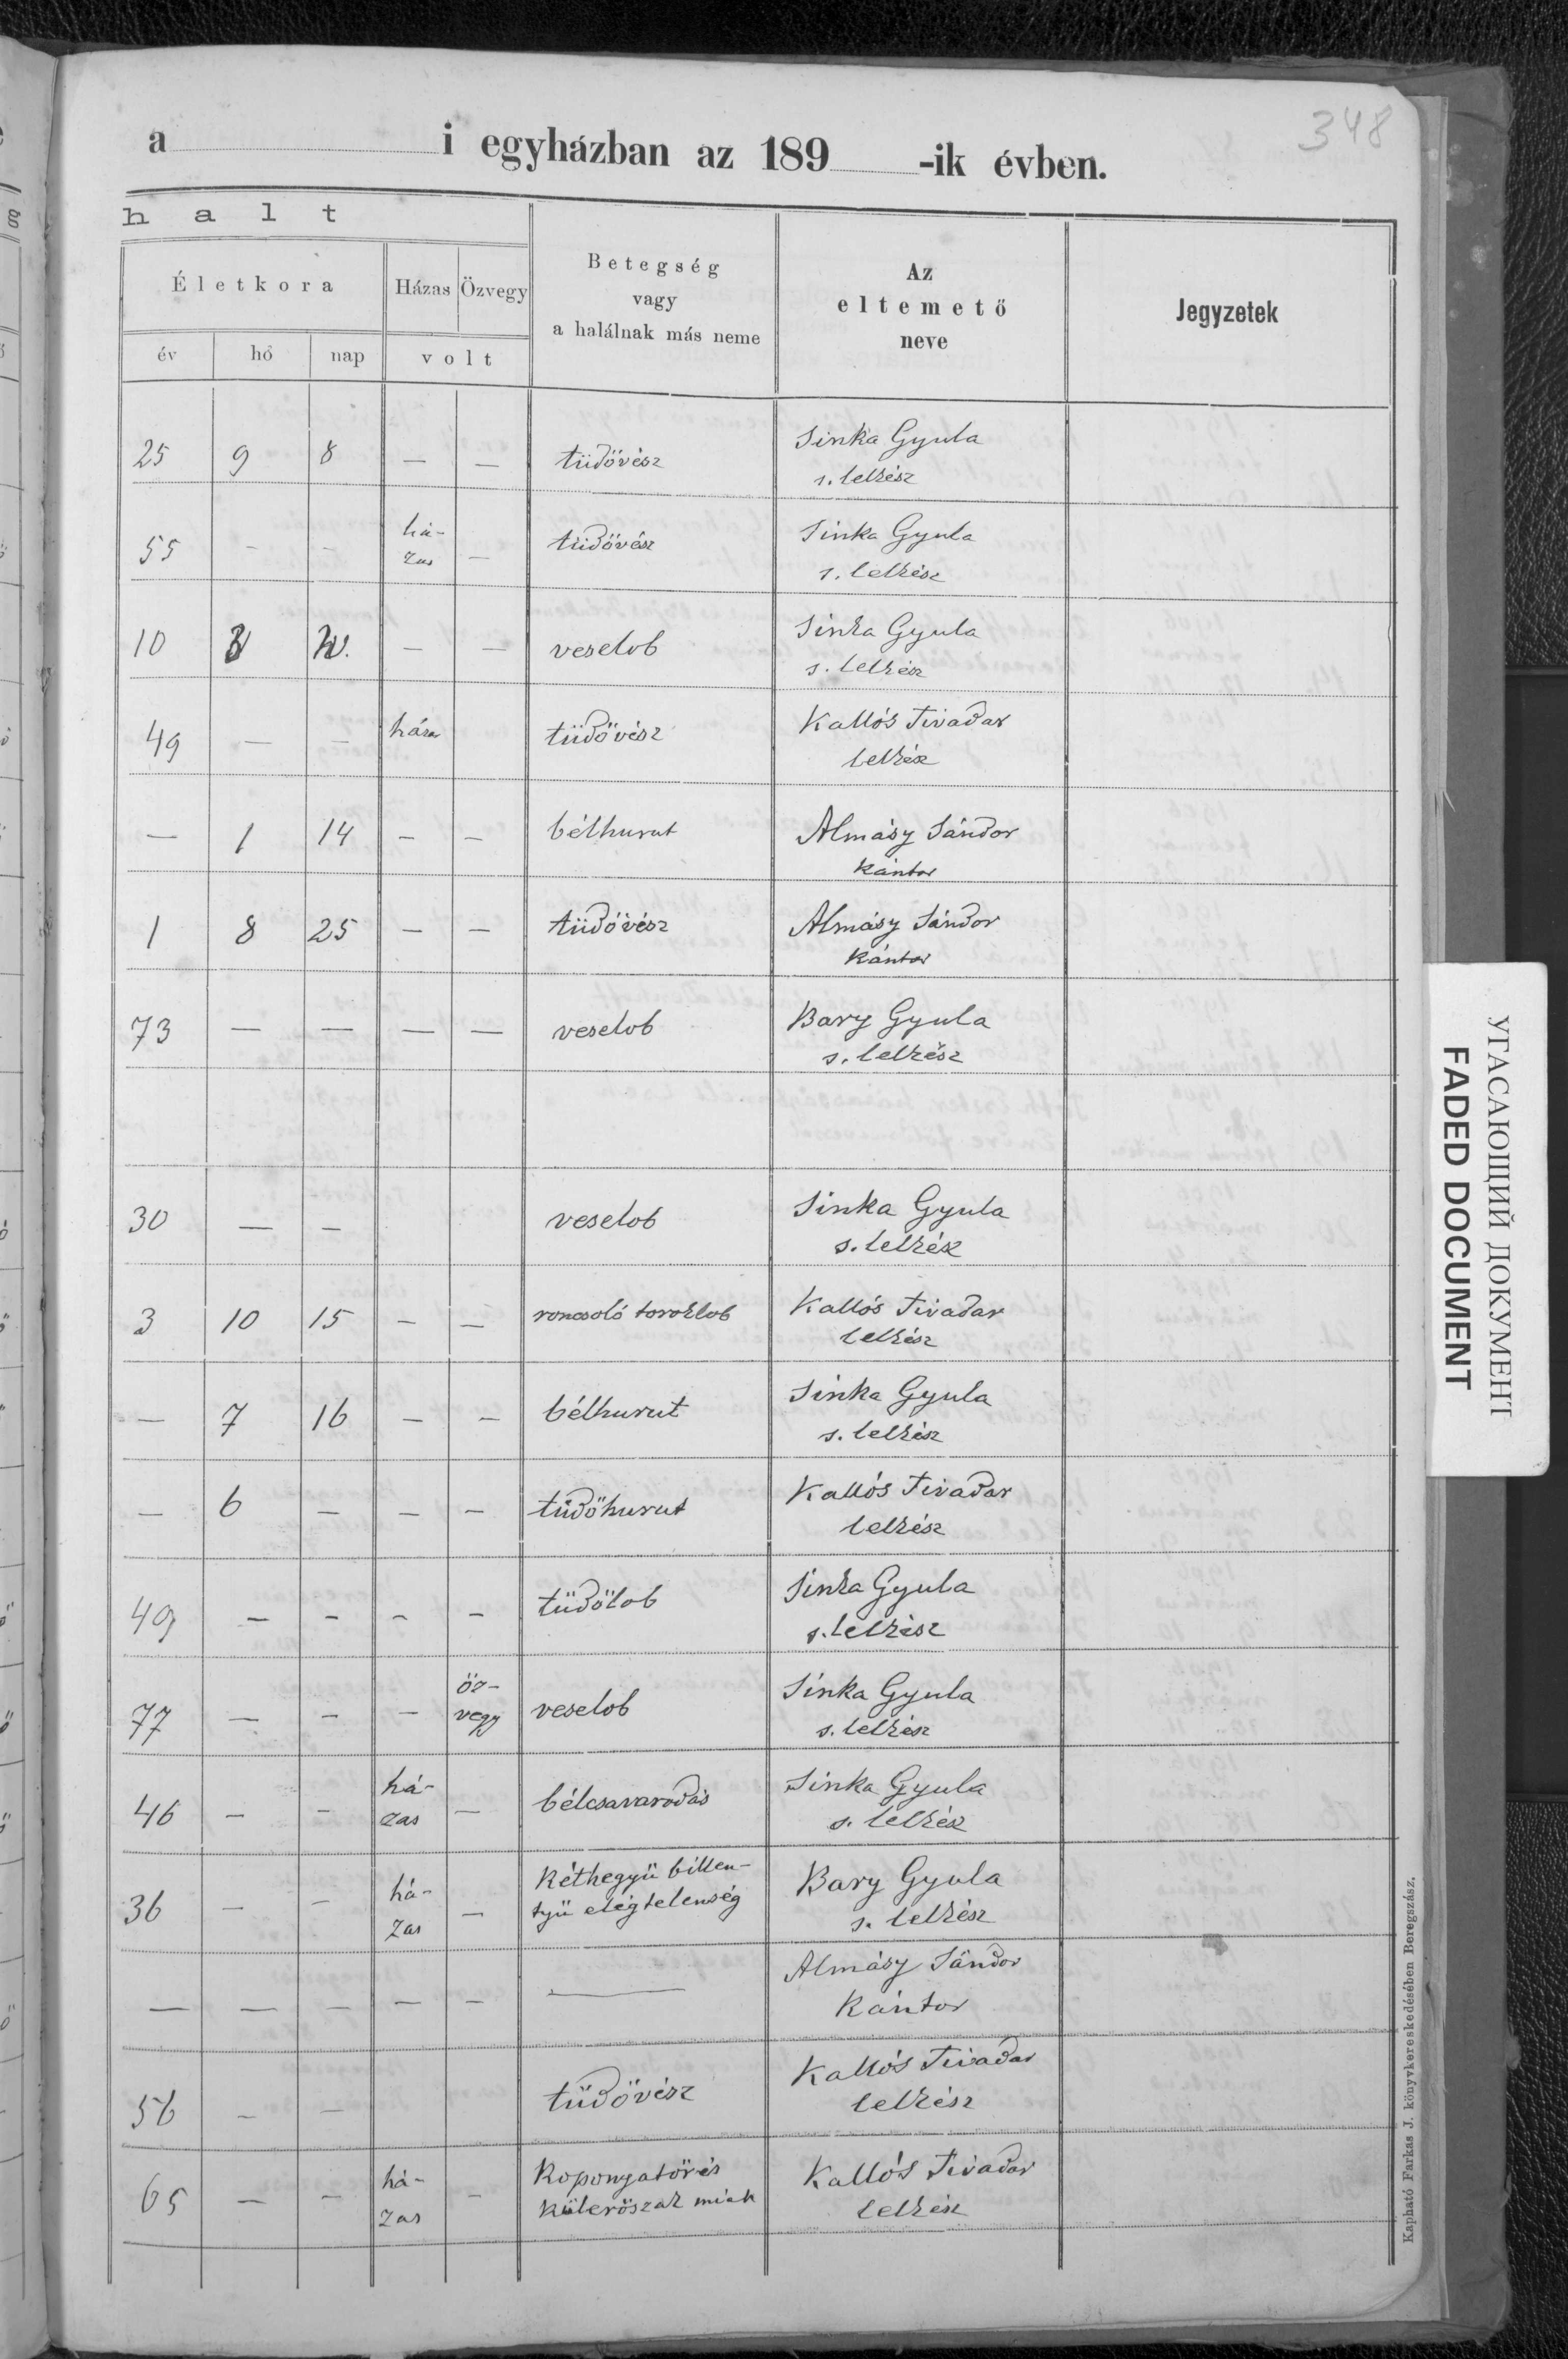 348
a i egyházban az 189 -ik évben.
halt
Életkora Házas Özvegy Betegség vagy a halálnak más neme Az eltemető neve Jegyzetek
év hó nap volt
25 9 8 — — tüdővész Sinka Gyula
s. lelkész
55 - - há- — tüdővész Sinka Gyula
zas s. lelkész
10 3 — — veselob Sinka Gyula
s. lelkész
49 — — házas tüdővész Kallós Tivadar
lelkész
— 1 14 — — bélhurut Almásy Sándor
kántor
1 8 25 — — tüdővész Almásy Sándor
kántor
73 — — — — veselob Bary Gyula
s. lelkész
30 — — veselob Sinka Gyula
s. lelkész
3 10 15 — — roncsoló toroklob Kallós Tivadar
lelkész
— 7 16 — — bélhurut Sinka Gyula
s. lelkész
— 6 — — — tüdőhurut Kallós Tivadar
lelkész
49 — - - - tüdőlob Sinka Gyula
s. lelkész
77 — - — öz- veselob Sinka Gyula
vegy s. lelkész
46 - - há- — bélcsavarodás Sinka Gyula
zas s. lelkész
36 - - há- — Kéthegyü billen- Bary Gyula
zas tyü elégtelenség s. lelkész
— — — — — — Almásy Sándor
Kántor
56 - — tüdővész Kallós Tivadar
lelkész
65 — - há- - Koponyatörés Kallós Tivadar
zas külerőszak miatt lelkész
Kapható Farkas J. könyvkereskedésében Beregszász.
УГАСАЮЩИЙ ДОКУМЕНТ
FADED DOCUMENT